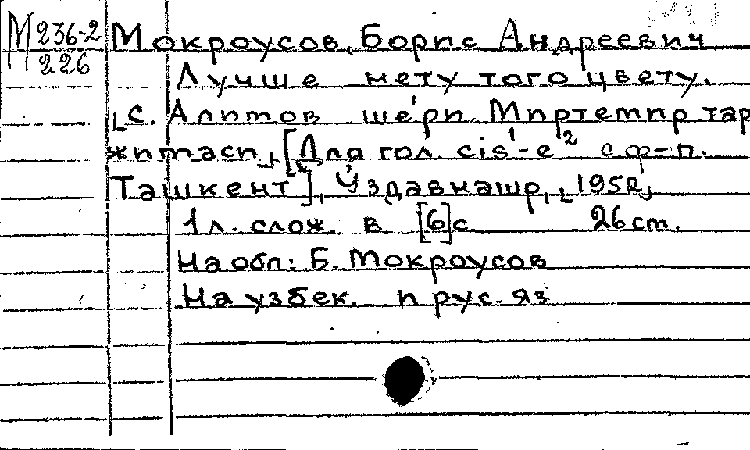 М 236-2 Мокроусов, Борис Андреевич
226 Лучше нету того цвету.
с. Алимов шеъри Миртемир тар
жимаси, [Для гол. cis¹-e² с ф-п.
Ташкент], Уздавнашр, 1952,
1 л. слож. в [6] с 26 см.
На обл: Б. Мокроусов
На узбек. и рус. яз